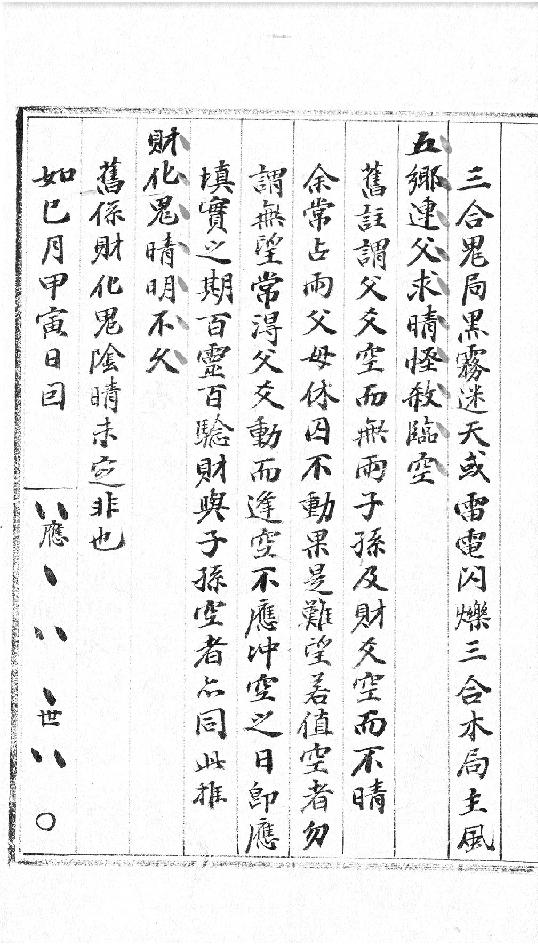 三合鬼局黑霧迷天或雷電閃爍三合木局主風
五鄉連父求晴怪殺臨空
舊註謂父爻空而無雨子孫及財爻空而不晴
余常占雨父母休囚不動果是難望若值空者勿
謂無望常得父爻動而逢空不應冲空之日即應
填實之期百靈百驗財與子孫空者亦同此推
財化鬼晴明不久
舊係財化鬼陰晴未定非也
如巳月甲寅日囙
應
世